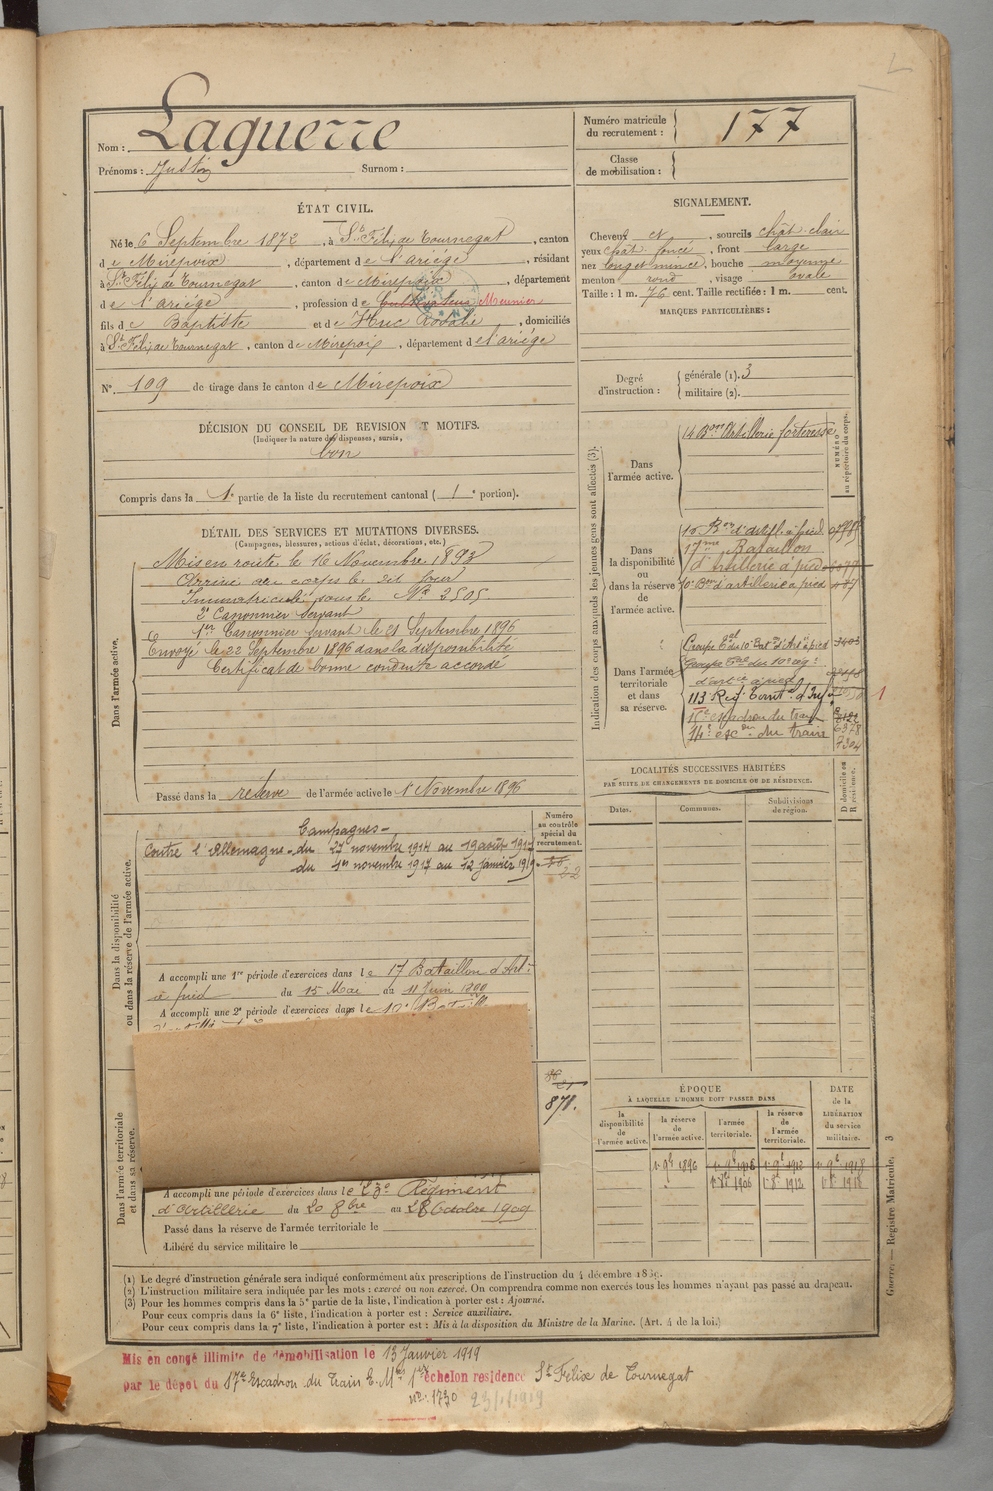 Nom : Laguerre
Prénoms : Justin Surnom :
Numéro matricule du recrutement : 177
Classe de mobilisation :
ÉTAT CIVIL.
Né le 6 Septembre 1872, à St Félix de Tournegat, canton
de Mirepoix, département de l'ariége, résidant
à St Félix de Tournegat, canton de Mirepoix, département
de l'ariége, profession de Cultivateur Meunier
fils de Baptiste et de Huc Rosalie, domiciliés
à St Félix de Tournegat, canton de Mirepoix, département de l'ariége
N° 109 de tirage dans le canton de Mirepoix
SIGNALEMENT.
Cheveux et, sourcils chât. clair
yeux chât. foncé, front large
nez long et mince, bouche moyenne
menton rond, visage ovale
Taille : 1 m. 76 cent. Taille rectifiée : 1 m. cent.
MARQUES PARTICULIÈRES :
Degré d'instruction : générale (1). 3
militaire (2).
DÉCISION DU CONSEIL DE REVISION ET MOTIFS.
(Indiquer la nature des dispenses, sursis,
bon
Compris dans la 1e partie de la liste du recrutement cantonal (1e portion).
DÉTAIL DES SERVICES ET MUTATIONS DIVERSES.
(Campagnes, blessures, actions d'éclat, décorations, etc.)
Dans l'armée active.
Mis en route le 16 Novembre 1893
Arrivé au corps le dit jour
Immatriculé sous le N° 2505
2e Canonnier servant
1er Canonnier servant le 21 Septembre 1896
Envoyé le 22 Septembre 1896 dans la disponibilité
Certificat de bonne conduite accordé
Passé dans la réserve de l'armée active le 1 Novembre 1896
Indication des corps auxquels les jeunes gens sont affectés (3).
NUMÉRO au répertoire du corps.
Dans l'armée active.
14 Bon Artillerie forteresse
Dans la disponibilité ou dans la réserve de l'armée active.
10 Bon d'artil. à pied
17me Bataillon
d'artillerie à pied
10e Bon d'artillerie à pied
Dans l'armée territoriale et dans sa réserve.
Groupe Tal du 10e Bat. d'Art. à pied 3403
Groupe Tal du 10e rég.
d'art. à pied
113 Reg. Territ. d'Inf.
17e escadron du train
14e escon du train 7304
1
LOCALITÉS SUCCESSIVES HABITÉES
PAR SUITE DE CHANGEMENTS DE DOMICILE OU DE RÉSIDENCE.
Dates. Communes. Subdivisions de région. D domicile ou R résidence.
Numéro au contrôle spécial du recrutement.
Dans la disponibilité ou dans la réserve de l'armée active.
Campagnes
Contre l'Allemagne du 27 novembre 1914 au 19 août 1917
du 1er novembre 1917 au 12 janvier 1919
A accompli une 1re période d'exercices dans le 17 Bataillon d'Art.
à pied du 15 Mai au 11 Juin 1900
A accompli une 2e période d'exercices dans le 10e Bataill
878.
ÉPOQUE
À LAQUELLE L'HOMME DOIT PASSER DANS
la disponibilité de l'armée active.
la réserve de l'armée active.
l'armée territoriale.
la réserve de l'armée territoriale.
DATE de la LIBÉRATION du service militaire.
1r 9e 1896 1r 9e 1906 1r 9e 1912 1r 9e 1918
1r 8e 1906 1r 8e 1912 1r 8e 1918
Dans l'armée territoriale et dans sa réserve.
A accompli une période d'exercices dans le 23e Régiment
d'Artillerie du 20 8bre au 28 Octobre 1909
Passé dans la réserve de l'armée territoriale le
Libéré du service militaire le
(1) Le degré d'instruction générale sera indiqué conformément aux prescriptions de l'instruction du 4 décembre 1889.
(2) L'instruction militaire sera indiquée par les mots : exercé ou non exercé. On comprendra comme non exercés tous les hommes n'ayant pas passé au drapeau.
(3) Pour les hommes compris dans la 5e partie de la liste, l'indication à porter est : Ajourné.
Pour ceux compris dans la 6e liste, l'indication à porter est : Service auxiliaire.
Pour ceux compris dans la 7e liste, l'indication à porter est : Mis à la disposition du Ministre de la Marine. (Art. 4 de la loi.)
Guerre. — Registre Matricule. 3
Mis en congé illimité de démobilisation le 13 Janvier 1919
par le dépôt du 17e Escadron du Train E. M. 1er échelon résidence St Félix de Tournegat
N° 1730 23/1/1919